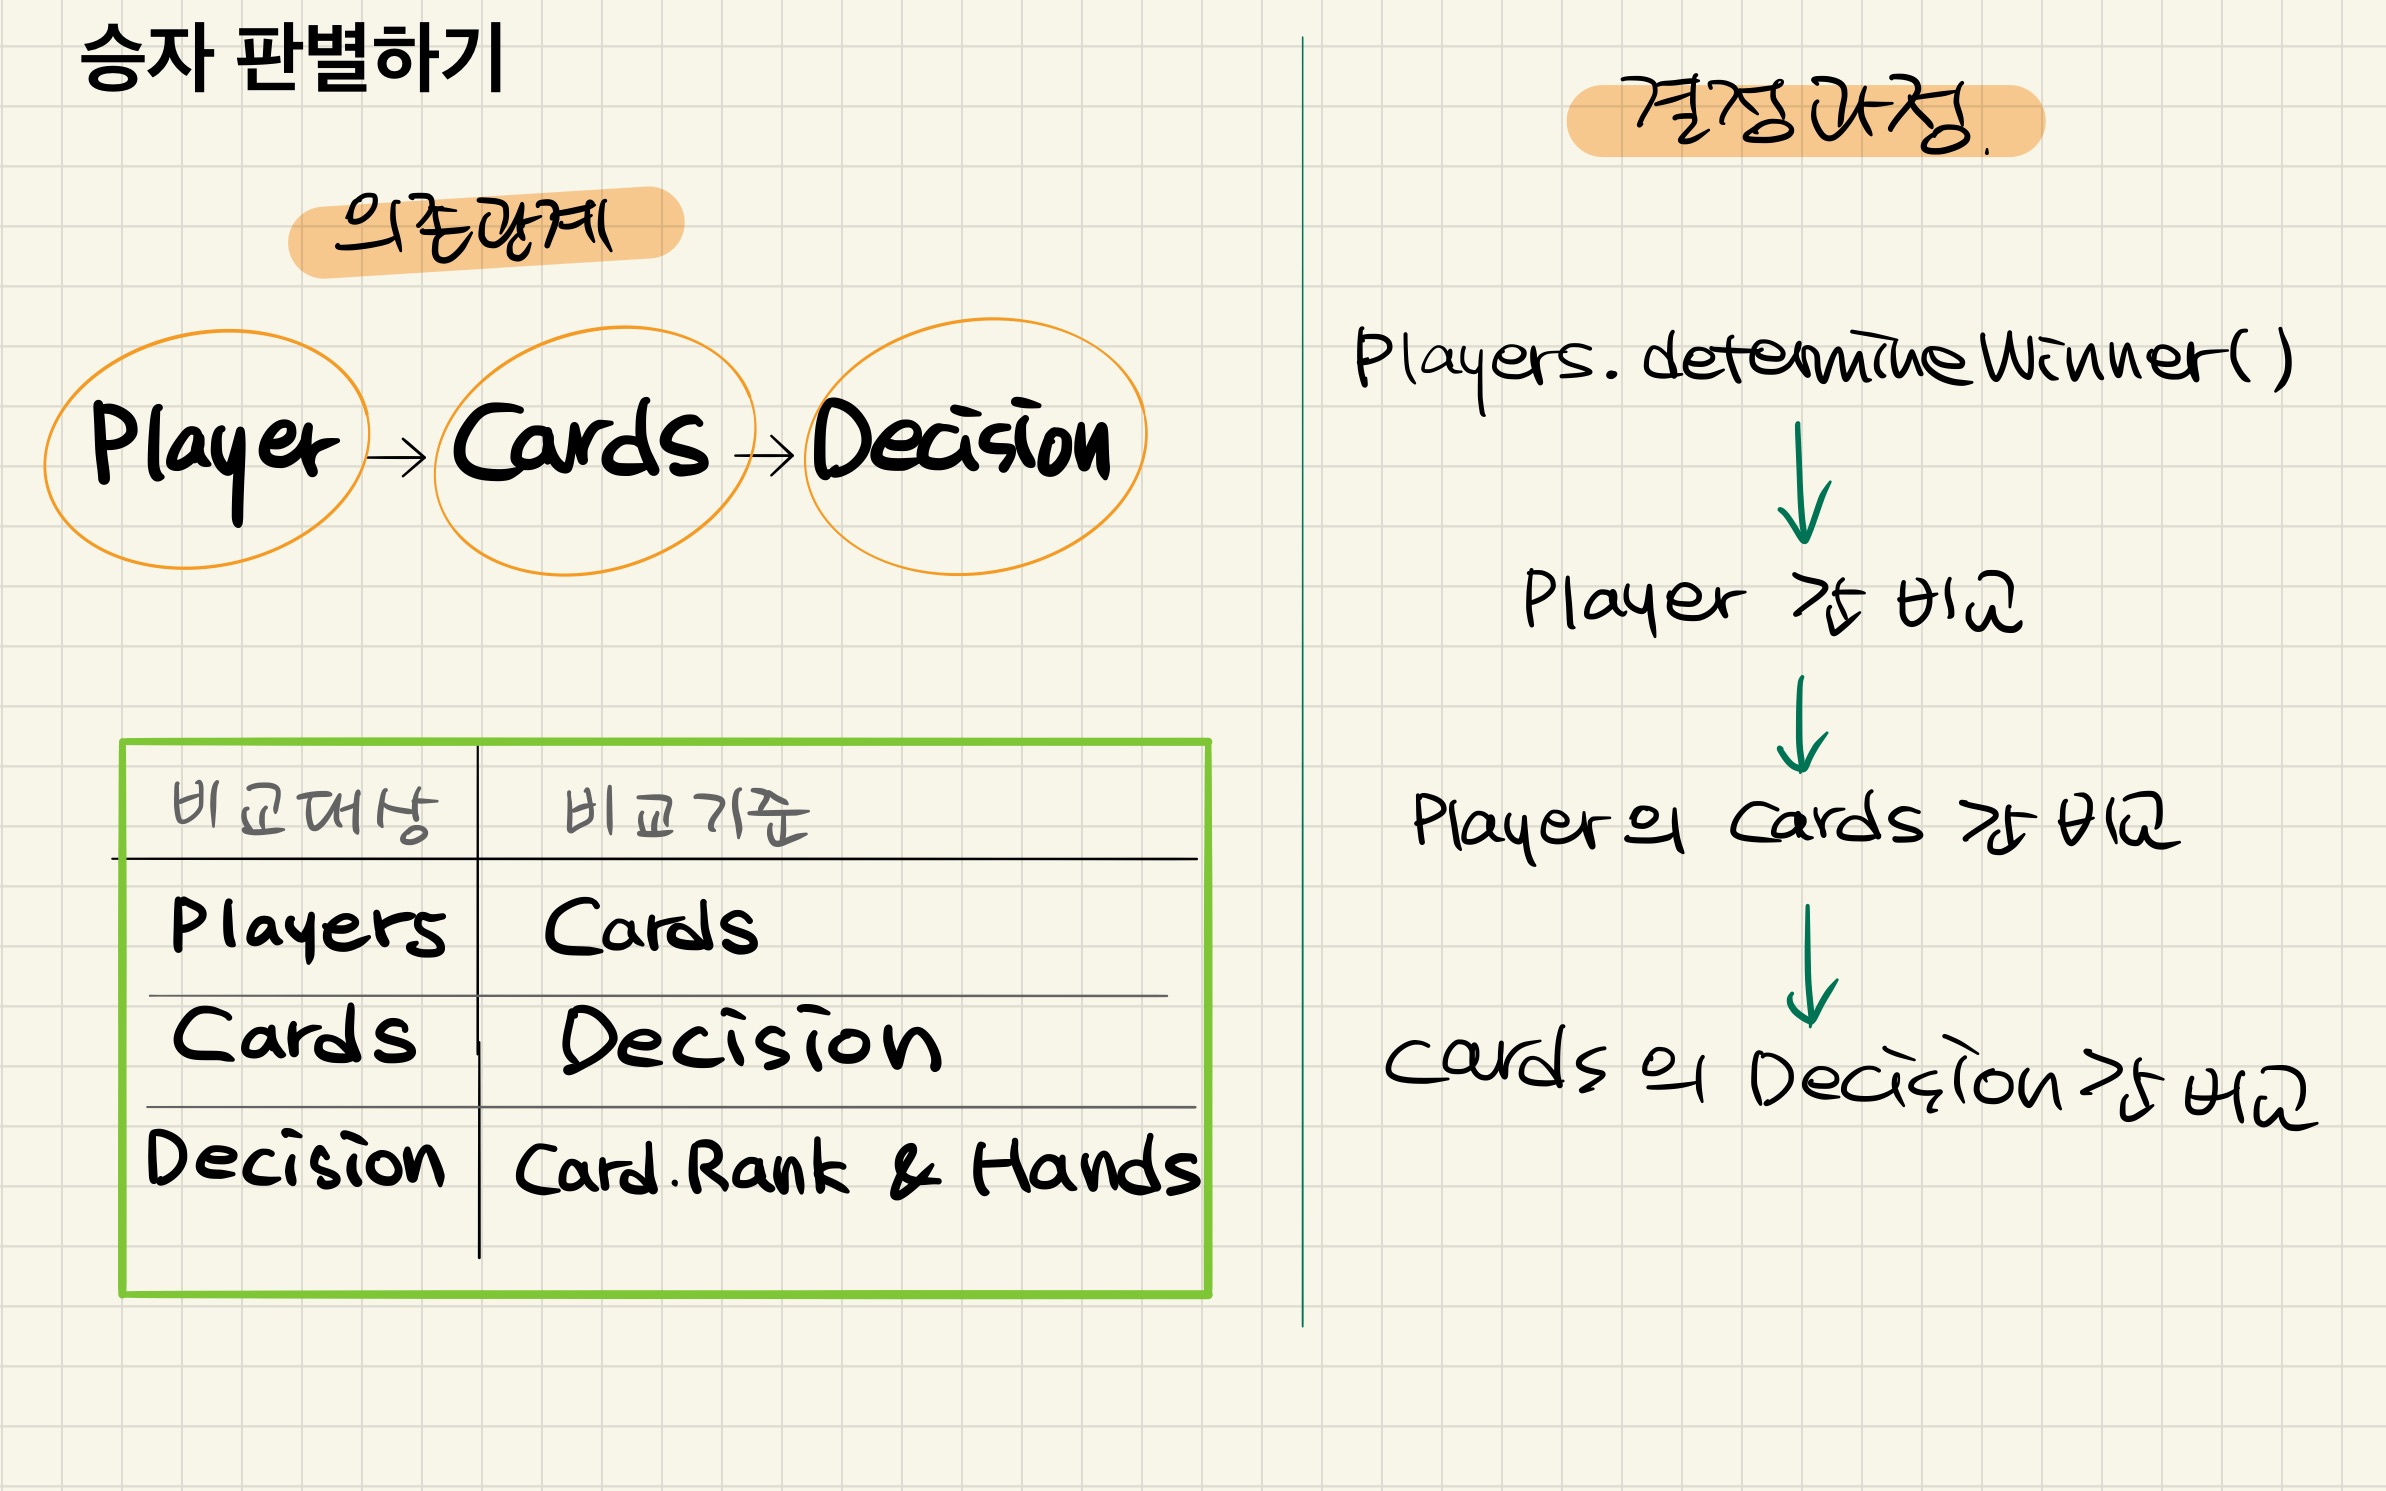 승자 판별하기
의존관계
Player → Cards → Decision
비교대상 비교기준
Players Cards
Cards Decision
Decision Card.Rank & Hands
결정과정.
Players.determineWinner()
Player 간 비교
Player의 Cards 간 비교
Cards 의 Decision 간 비교